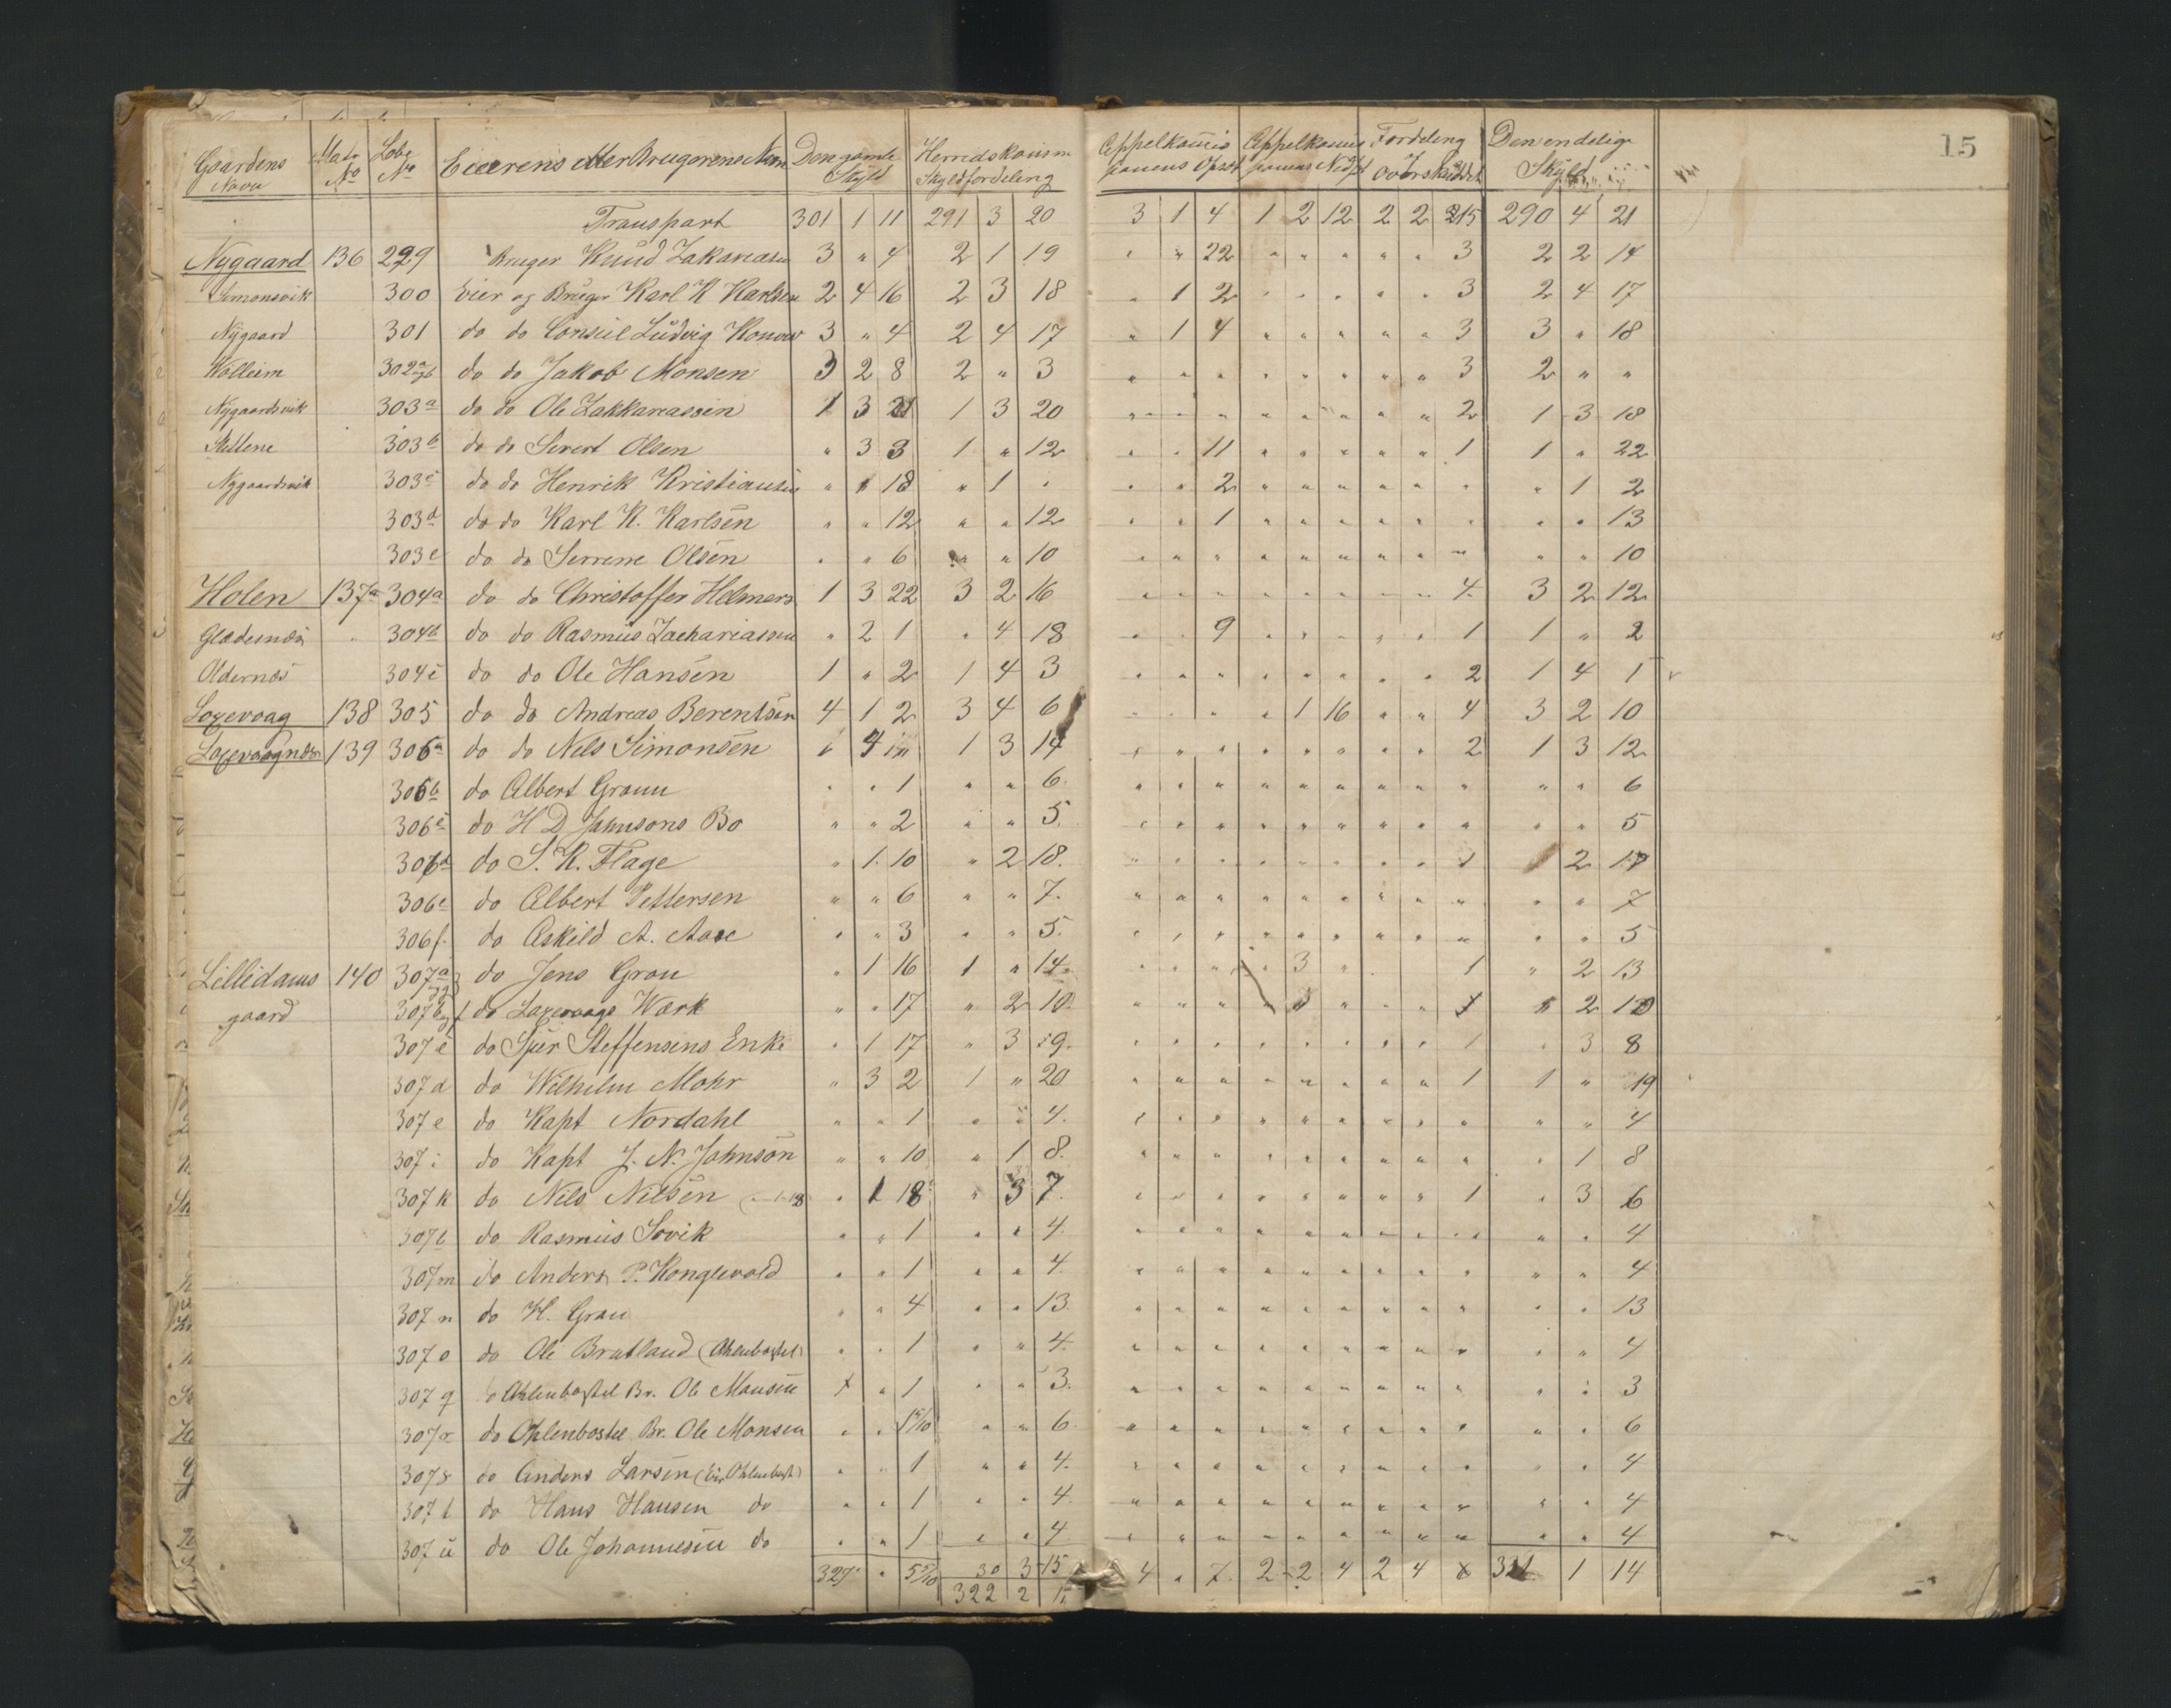 15
Gaardens Navn Matr No Løbe No Eierens eller Brugerens Navn Den gamle Skyld Herredskomm Skyldfordeling Appelkomis sionens Opsæt Appelkomis sionens Nedsæt Fordeling Overskuddet Den endelige Skyld
Transport 301 1 11 291 3 20 3 1 4 1 2 12 2 2 15 290 4 21
Nygaard 136 299 Bruger Knud Zakariasen 3 " 4 2 1 19 " " 22 " " " " " 3 2 2 14
Simonsvik 300 Eier og Bruger Karl K Karlsen 2 4 16 2 3 18 " 1 2 " " " " " 3 2 4 17
Nygaard 301 do do Consul Ludvig Konow 3 " 4 2 4 17 " 1 4 " " " " " 3 3 " 18
302 a og b do do Jakob Monsen 3 2 8 2 " 3 " " " " " " " " 3 2 " "
Nygaardsvik 303 a do do Ole Zakkariassen 1 3 21 1 3 20 " " " " " " " " 2 1 3 18
303 b do do Sivert Olsen " 3 3 1 " 12 " " 11 " " " " " 1 1 " 22
Nygaardsvik 303 c do do Henrik Kristiansen " 1 18 " 1 " " " 2 " " " " " " " 1 2
303 d do do Karl K. Karlsen " " 12 " " 12 " " 1 " " " " " " " " 13
303 e do do Serrene Olsen " " 6 " " 10 " " " " " " " " " " " 10
Holen 137 a 304 a do do Christoffer Helmers 1 3 22 3 2 16 " " " " " " " " 4 3 2 12
304 b do do Rasmus Zachariassen " 2 1 " 4 18 " " 9 " " " " " 1 1 " 2
Oldernæs 304 c do do Ole Hansen 1 " 2 1 4 3 " " " " " " " " 2 1 4 1
Laxevaag 138 305 do do Andreas Berentsen 4 1 2 3 4 6 " " " " 1 16 " " 4 3 2 10
Laxevaagnæs 139 306 a do do Nels Simonsen 4 1 3 14 " " " " " " " " 2 1 3 12
306 b do Albert Gronn " " 1 " " 6 " " " " " " " " " " " 6
306 c do H D Jahnsons Bo " " 2 " " 5 " " " " " " " " " " " 5
306 d do S. K. Flage " 1 10 " 2 18 " " " " " " " " 1 2 17
306 e do Albert Pettersen " " 6 " " 7 " " " " " " " " " " " 7
306 f. do Askild A. Aase " " 3 " " 5 " " " " " " " " " " " 5
Lilledams 140 307 a do Jens Gran " 1 16 1 " 14 " " " " 3 " 1 " 2 13
gaard 307 b do Laxevaags Værk " " 17 " 2 10 " " " " " " " 2
307 c do Sjur Steffensens Enke " 1 17 " 3 9 " " " " " " " " 1 " 3 8
307 d do Wilhelm Mohr " 3 2 1 " 20 " " " " " " " " 1 1 " 19
307 e do Kapt Nordahl " " 1 " " 4 " " " " " " " " " " " 4
307 i do Kapt J. N. Jahnson " " 10 " 1 8 " " " " " " " " " " 1 8
307 k do Nils Nilsen " 1 18 " 3 7 " " " " " " " " 1 " 3 6
307 l do Rasmus Sovik " " 1 " " 4 " " " " " " " " " " " 4
307 m do Anders P. Konglevold " " 1 " " 4 " " " " " " " " " " " 4
307 n do H. Gran " " 4 " " 13 " " " " " " " " " " " 13
307 o do Ole Bratland (Ahlenbostel) " " 1 " " 4 " " " " " " " " " " " 4
307 q do Ahlenbostel Br. Ole Monsen " 1 " " 3 " " " " " " " " " " " 3
307 r do Ohlenbostel Br. Ole Monsen " " " " 6 " " " " " " " " " " " 6
307 s do Anders Larsen " " 1 " " 4 " " " " " " " " " " " 4
307 t do Hans Hansen do " " 1 " " 4 " " " " " " " " " " " 4
307 u do Ole Johannesen do " " 1 " " 4 " " " " " " " " " " " 4
327 " 5 30 3 15 4 " 7 2 2 4 2 4 1 14
322 2